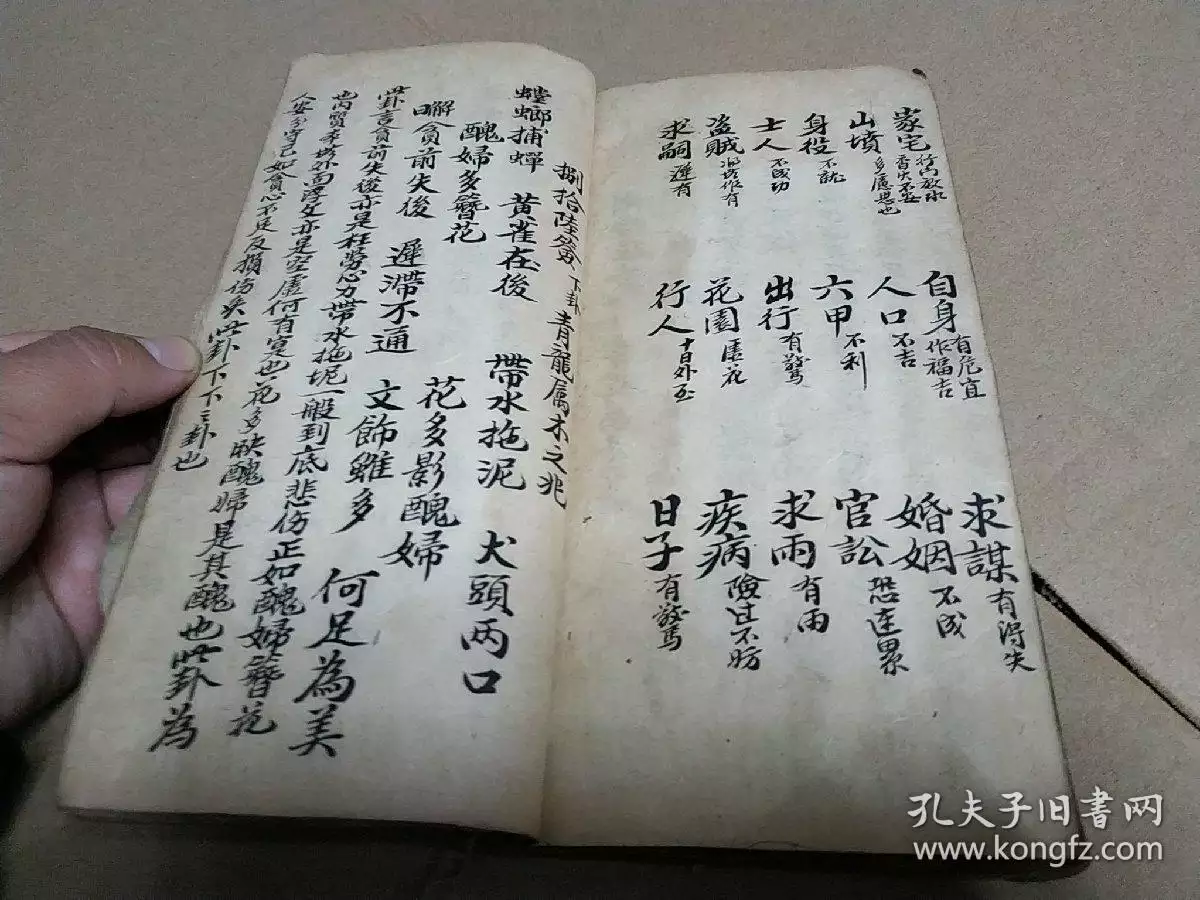 家宅
自身 有危宜作福吉
求謀 有得失
山墳 多慮思也
人口 不吉
婚姻 不成
身役 不就
六甲 不利
官訟 恐连累
士人 不成功
出行 有驚
求雨 有雨
盜賊 作有
花園 花
疾病 險过不妨
求嗣 遲有
行人 十日外至
日子 有驚
捌拾陸簽 下卦 青龍属木之兆
螳螂捕蟬 黃雀在後 帶水拖泥 犬頭兩口
醜婦多簪花 花多影醜婦
貪前失後 遲滯不通 文飾雖多 何足為美
此卦言貪前失後亦是枉劳心力帶水拖坭一般到底悲伤正如醜婦簪花
也内質外面浮文亦是空虛何有寔也花多映醜婦是其醜也此卦為
人安分守己如貪心不足反損伤矣此卦下下之卦也
孔夫子旧書网
www.kongfz.com